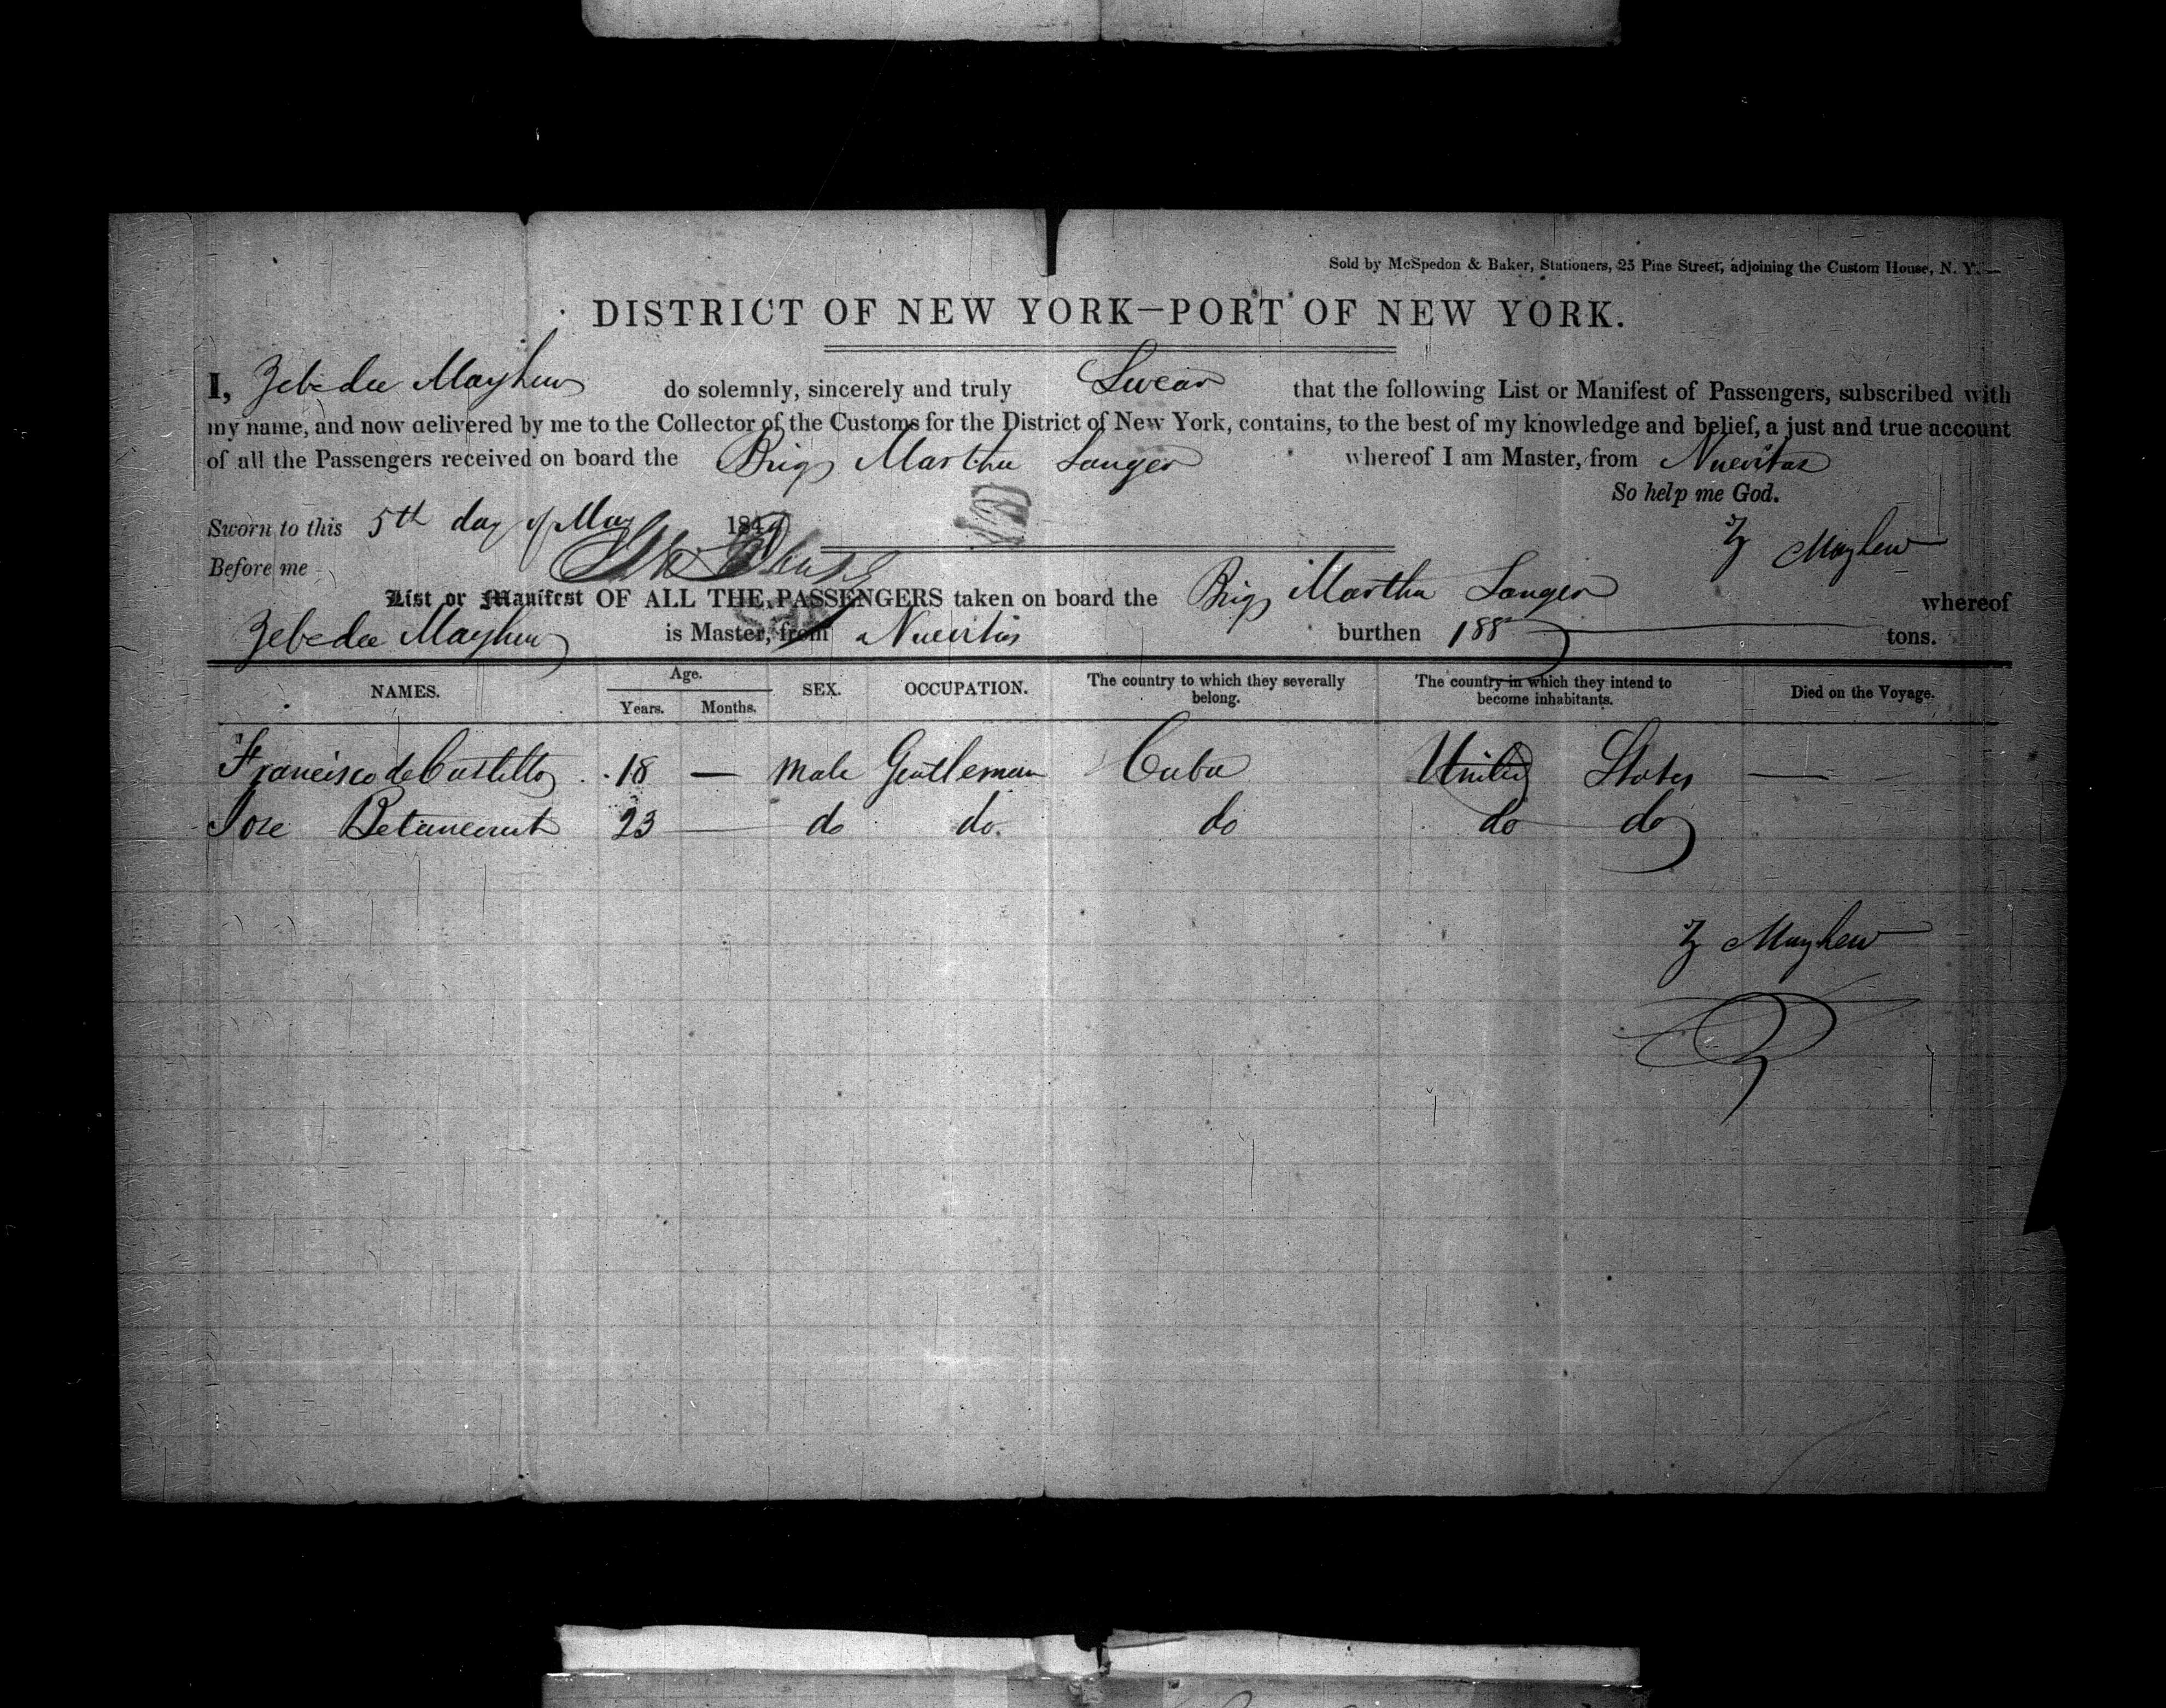 Sold by McSpedon & Baker, Stationers, 25 Pine Street, adjoining the Custom House, N. Y.
DISTRICT OF NEW YORK—PORT OF NEW YORK.
I, Zebedee Mayhew do solemnly, sincerely and truly Swear that the following List or Manifest of Passengers, subscribed with
my name, and now delivered by me to the Collector of the Customs for the District of New York, contains, to the best of my knowledge and belief, a just and true account
of all the Passengers received on board the Brig Martha Sanger whereof I am Master, from Nuevitas
So help me God.
Sworn to this 5th day of May 184
Z Mayhew
Before me
List or Manifest OF ALL THE PASSENGERS taken on board the Brig Martha Sanger whereof
Zebedee Mayhew is Master, from Nuevitas burthen 188 tons.
NAMES. Age. Years. Months. SEX. OCCUPATION. The country to which they severally belong. The country in which they intend to become inhabitants. Died on the Voyage.
Francisco de Castillo 18 — Male Gentleman Cuba United States —
Jose Betancourt 23 — do do. do do do
Z Mayhew